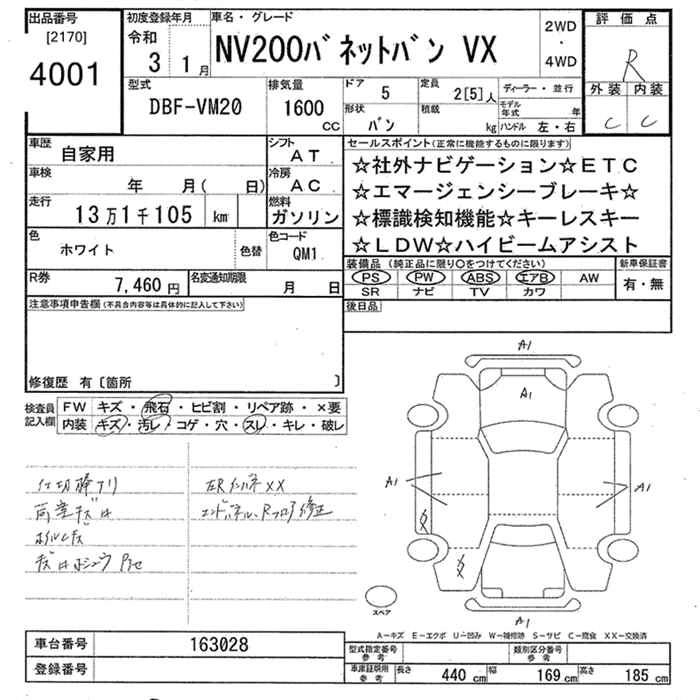 出品番号
[2170]
4001
初度登録年月
令和
3 1月
車名・グレード
NV200バネットバン VX
2WD
・
4WD
評価点
R
外装 内装
C C
型式
DBF-VM20
排気量
1600
CC
ドア
5
定員
2[5]人
ディーラー・並行
形状
バン
積載
kg
モデル年式
年
ハンドル 左・右
車歴
自家用
シフト
AT
車検
年 月( 日)
冷房
AC
走行
13万1千105 km
燃料
ガソリン
色
ホワイト
色替
色コード
QM1
R券
7,460円
名変通知期限
月 日
セールスポイント(正常に機能するものに限ります)
☆社外ナビゲーション☆ETC
☆エマージェンシーブレーキ☆
☆標識検知機能☆キーレスキー
☆LDW☆ハイビームアシスト
装備品(純正品に限り○をつけてください)
PS PW ABS エアB AW
SR ナビ TV カワ
新車保証書
有・無
後日品
注意事項申告欄(不具合内容等は具体的に記入して下さい)
修復歴 有〔箇所 〕
検査員
記入欄
FW キズ・飛石・ヒビ割・リペア跡・×要
内装 キズ・汚レ・コゲ・穴・スレ・キレ・破レ
A1
A1
A1
A1
A1
スペア
A-キズ E-エクボ U-凹み W-補修跡 S-サビ C-腐食 XX-交換済
車台番号
163028
登録番号
型式指定番号
参考
類別区分番号
参考
車庫証明用
参考
長さ 440 cm 幅 169 cm 高さ 185 cm